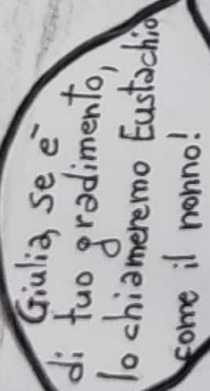 Giulia, se è
di tuo gradimento,
lo chiameremo Eustachio
come il nonno!